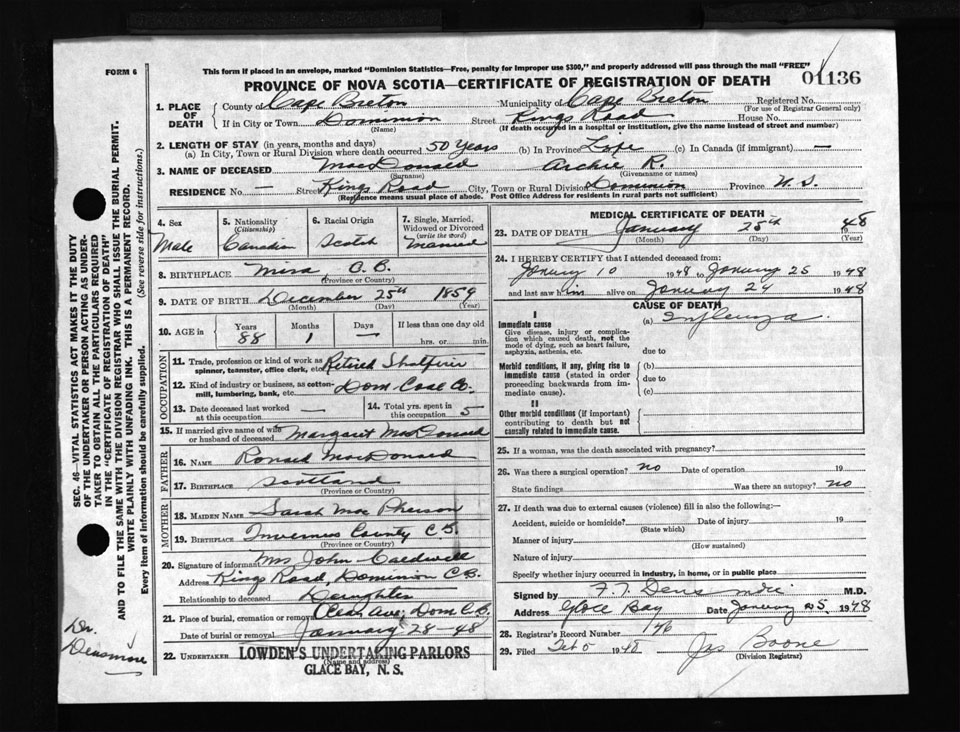 FORM 6
This form if placed in an envelope, marked "Dominion Statistics—Free, penalty for improper use $300," and properly addressed will pass through the mail "FREE"
PROVINCE OF NOVA SCOTIA—CERTIFICATE OF REGISTRATION OF DEATH 01136
1. PLACE OF DEATH County of Cape Breton Municipality of Cape Breton Registered No.
(For use of Registrar General only)
If in City or Town Dominion Street Kings Road House No.
(Name) (If death occurred in a hospital or institution, give the name instead of street and number)
2. LENGTH OF STAY (in years, months and days)
(a) In City, Town or Rural Division where death occurred 50 Years (b) In Province Life (c) In Canada (if immigrant) —
3. NAME OF DECEASED MacDonald Archie R.
(Surname) (Givenname or names)
RESIDENCE No — Street Kings Road City, Town or Rural Division Dominion Province N. S.
(Residence means usual place of abode. Post Office Address for residents in rural parts not sufficient)
4. Sex Male
5. Nationality (Citizenship) Canadian
6. Racial Origin Scotch
7. Single, Married, Widowed or Divorced (write the word) Married
8. BIRTHPLACE Mira C. B.
(Province or Country)
9. DATE OF BIRTH December 25th 1859
(Month) (Day) (Year)
10. AGE in Years 88 Months 1 Days — If less than one day old
hrs. or min.
OCCUPATION
11. Trade, profession or kind of work as spinner, teamster, office clerk, etc. Retired
12. Kind of industry or business, as cotton-mill, lumbering, bank, etc. Dom. Coal Co.
13. Date deceased last worked at this occupation —
14. Total yrs. spent in this occupation 5
15. If married give name of wife or husband of deceased Margaret MacDonald
FATHER
16. NAME Ronald MacDonald
17. BIRTHPLACE Scotland
(Province or Country)
MOTHER
18. MAIDEN NAME Sarah MacPherson
19. BIRTHPLACE Inverness County C. B.
(Province or Country)
20. Signature of informant Mrs John Caldwell
Address Kings Road, Dominion C. B.
Relationship to deceased Daughter
21. Place of burial, cremation or removal Ave, Dom C. B.
Date of burial or removal January 28-48
22. UNDERTAKER LOWDEN'S UNDERTAKING PARLORS
(Name and address)
GLACE BAY, N. S.
MEDICAL CERTIFICATE OF DEATH
23. DATE OF DEATH January 25th 1948
(Month) (Day) (Year)
24. I HEREBY CERTIFY that I attended deceased from:
January 10 1948 to January 25 1948
and last saw him alive on January 24 1948
CAUSE OF DEATH
I
Immediate cause (a) Influenza.
Give disease, injury or complication which caused death, not the mode of dying, such as heart failure, asphyxia, asthenia, etc.
due to
Morbid conditions, if any, giving rise to immediate cause (stated in order proceeding backwards from immediate cause).
(b)
due to
(c)
II
Other morbid conditions (if important) contributing to death but not causally related to immediate cause.
25. If a woman, was the death associated with pregnancy?
26. Was there a surgical operation? no Date of operation 19
State findings Was there an autopsy? no
27. If death was due to external causes (violence) fill in also the following:—
Accident, suicide or homicide? Date of injury 19
(State which)
Manner of injury
(How sustained)
Nature of injury
Specify whether injury occurred in industry, in home, or in public place
Signed by M.D.
Address Glace Bay Date January 25, 1948
28. Registrar's Record Number 146
29. Filed Feb 5 1948 Jas Boone
(Division Registrar)
SEC. 46—VITAL STATISTICS ACT MAKES IT THE DUTY OF THE UNDERTAKER OR PERSON ACTING AS UNDERTAKER TO OBTAIN ALL THE PARTICULARS REQUIRED IN THE "CERTIFICATE OF REGISTRATION OF DEATH"
AND TO FILE THE SAME WITH THE DIVISION REGISTRAR WHO SHALL ISSUE THE BURIAL PERMIT.
WRITE PLAINLY WITH UNFADING INK. THIS IS A PERMANENT RECORD.
Every item of information should be carefully supplied. (See reverse side for instructions.)
Dr.
Densmore